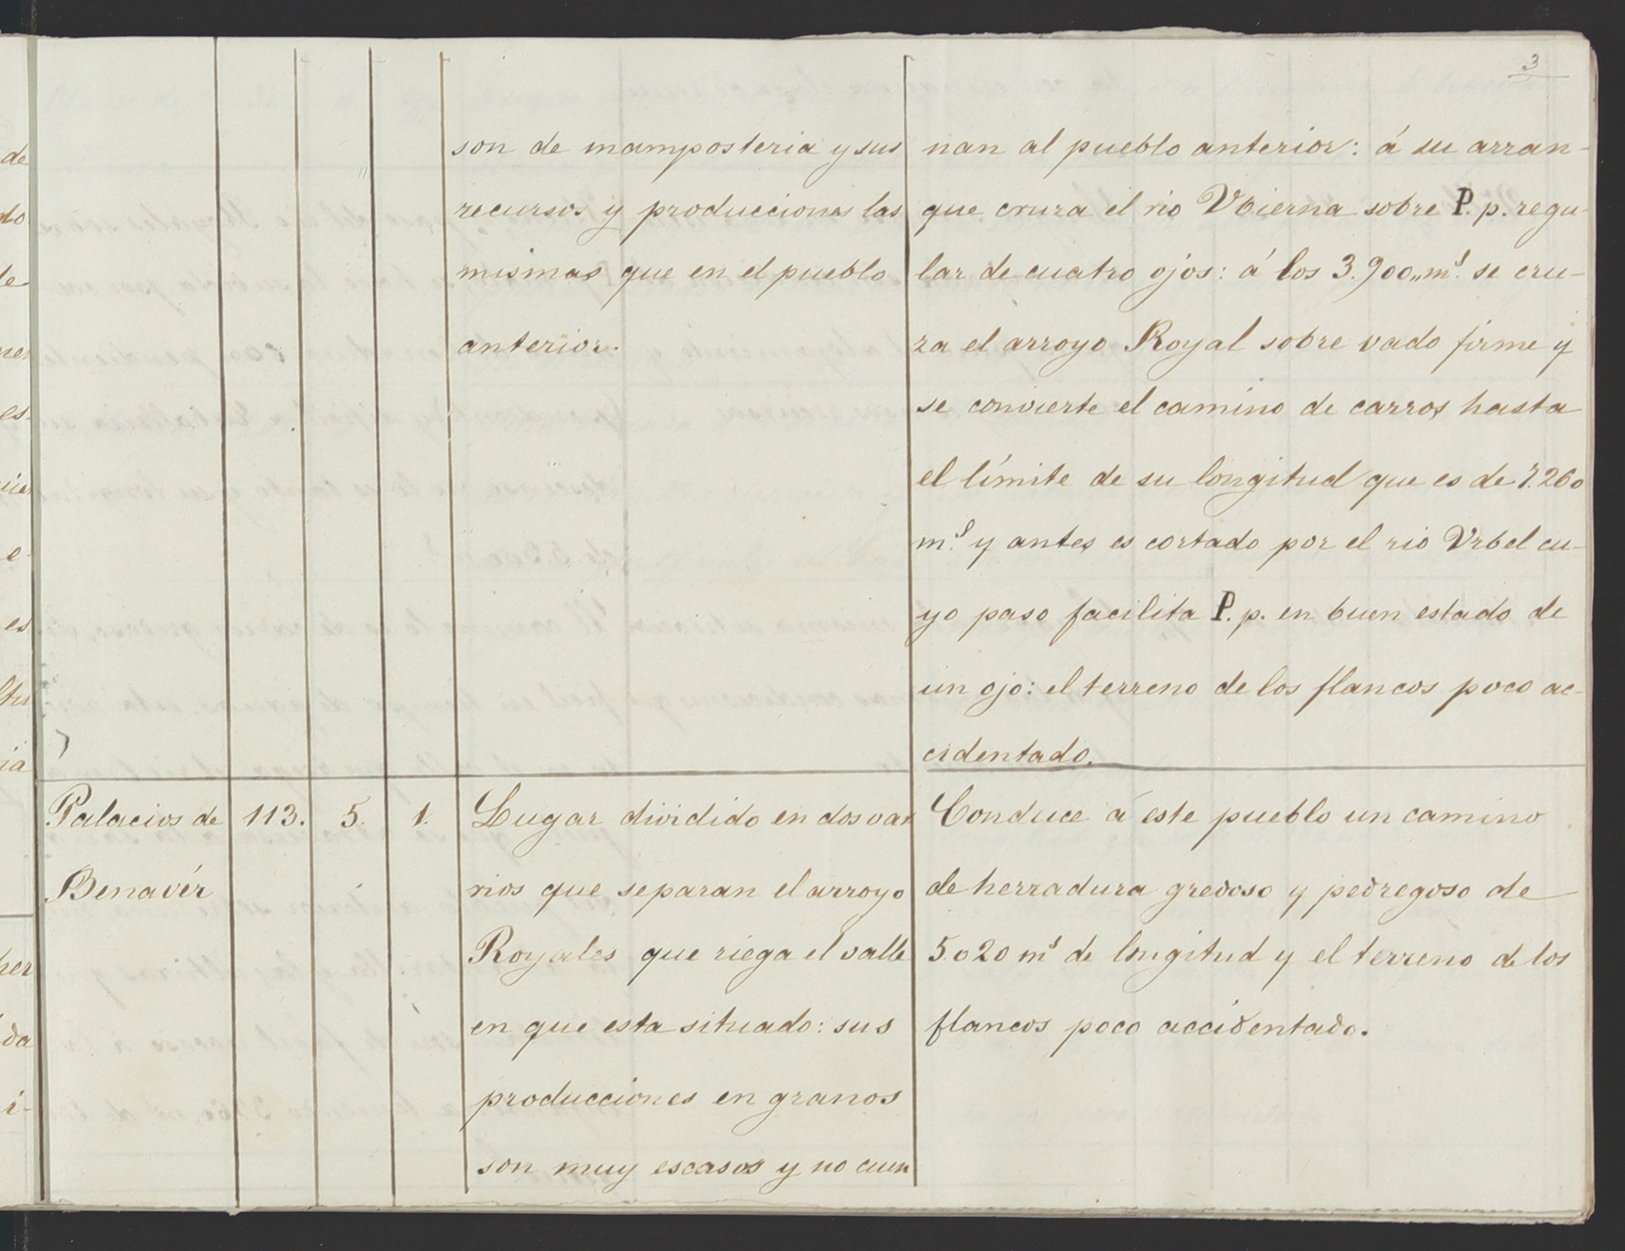 3
son de mamposteria y sus
recursos y producciones las
mismas que en el pueblo
anterior.
nan al pueblo anterior: á su arran-
que cruza el rio Vbierna sobre P. p. regu-
lar de cuatro ojos: á los 3.900,,mˢ. se cru-
za el arroyo Royal sobre vado firme y
se convierte el camino de carros hasta
el límite de su longitud que es de 7.260
mˢ. y antes es cortado por el rio Vrbel cu-
yo paso facilita P. p. en buen estado de
un ojo: el terreno de los flancos poco ac-
cidentado.
Palacios de
Benavér
113. 5. 1.
Lugar dividido en dos var
rios que separan el arroyo
Royales que riega el valle
en que esta situado: sus
producciones en granos
son muy escasos y no cuen
Conduce á este pueblo un camino
de herradura gredoso y pedregoso de
5.020 mˢ de longitud y el terreno de los
flancos poco accidentado.
de
es
e
es
ia
da
i-